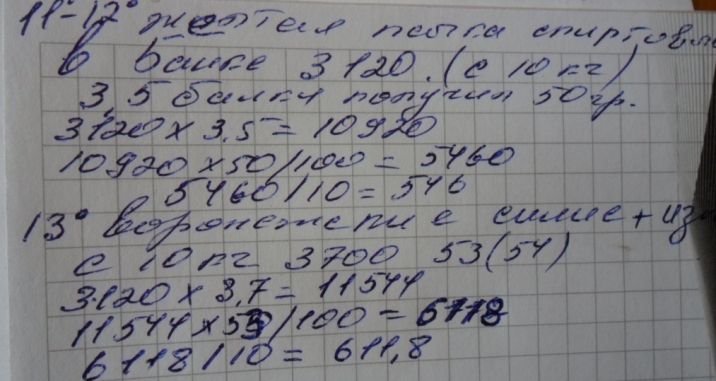 11-12° желтая палка спиртов
в банке 3120. (с 10 кг)
3,5 банки получил 50гр.
3120 x 3,5 = 10920
10920 x 50/100 = 5460
5460/10 = 546
13° воронежские синие + из
с 10 кг 3700 53(54)
3120 x 3,7 = 11544
11544 x 53/100 = 6118
6118/10 = 611,8